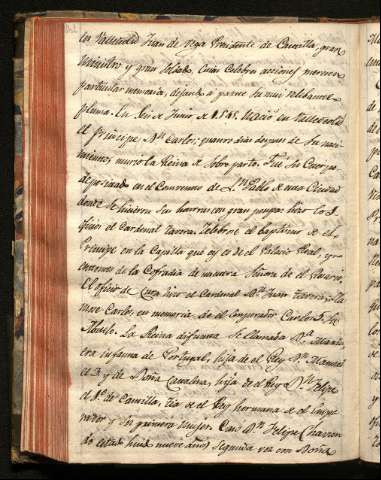 en Valladolid Juan de Vega Presidente de Castilla, gran
Ministro y gran Soldado, cuias celebres acciones merecen
particular memoria, dejando a parte su mui relebante
pluma. En de Junio de 1545. Nació en Valladolid
el Principe, Dn. Carlos; quatro dias despues de su naci
miento, murio la Reina de sobre parto. Fue su Cuerpo
depositado en el Convento de Sn. Pablo de esta Ciudad
donde se hicieron sus honrras con gran pompa: hizo los
ofizi el Cardenal Tavera. Celebrose el baptismo de el
Principe en la Capilla que oy es de el Palacio Real, y
entonces de la Cofradia de nuestra Señora de el Rosario,
El oficio de Cura hizo el Cardenal Dn. Juan Tavera, lla
mose Carlos, en memoria de el Emperador Carlos 5. su
Abuelo. La Reina difunta se llamaba Da. Maria
era infanta de Portugal, hija de el Rey Dn. Manuel
el y de Doña Catalina, hija de el Rey Dn. Felipe
el 1o. de Castilla, tia de el Rey hermana de el Empe
rador y su primera muger. Caso Dn. Felipe
do estado viudo nueve años segunda vez con Doña